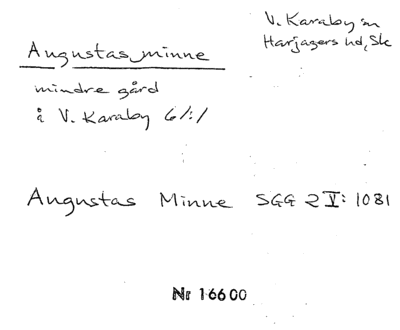 V. Karaby sn
Harjagers hd, Sk
Augustas minne
mindre gård
å V. Karaby 6/:/
Augustas Minne SGG 2 V: 1081
Nr 16600